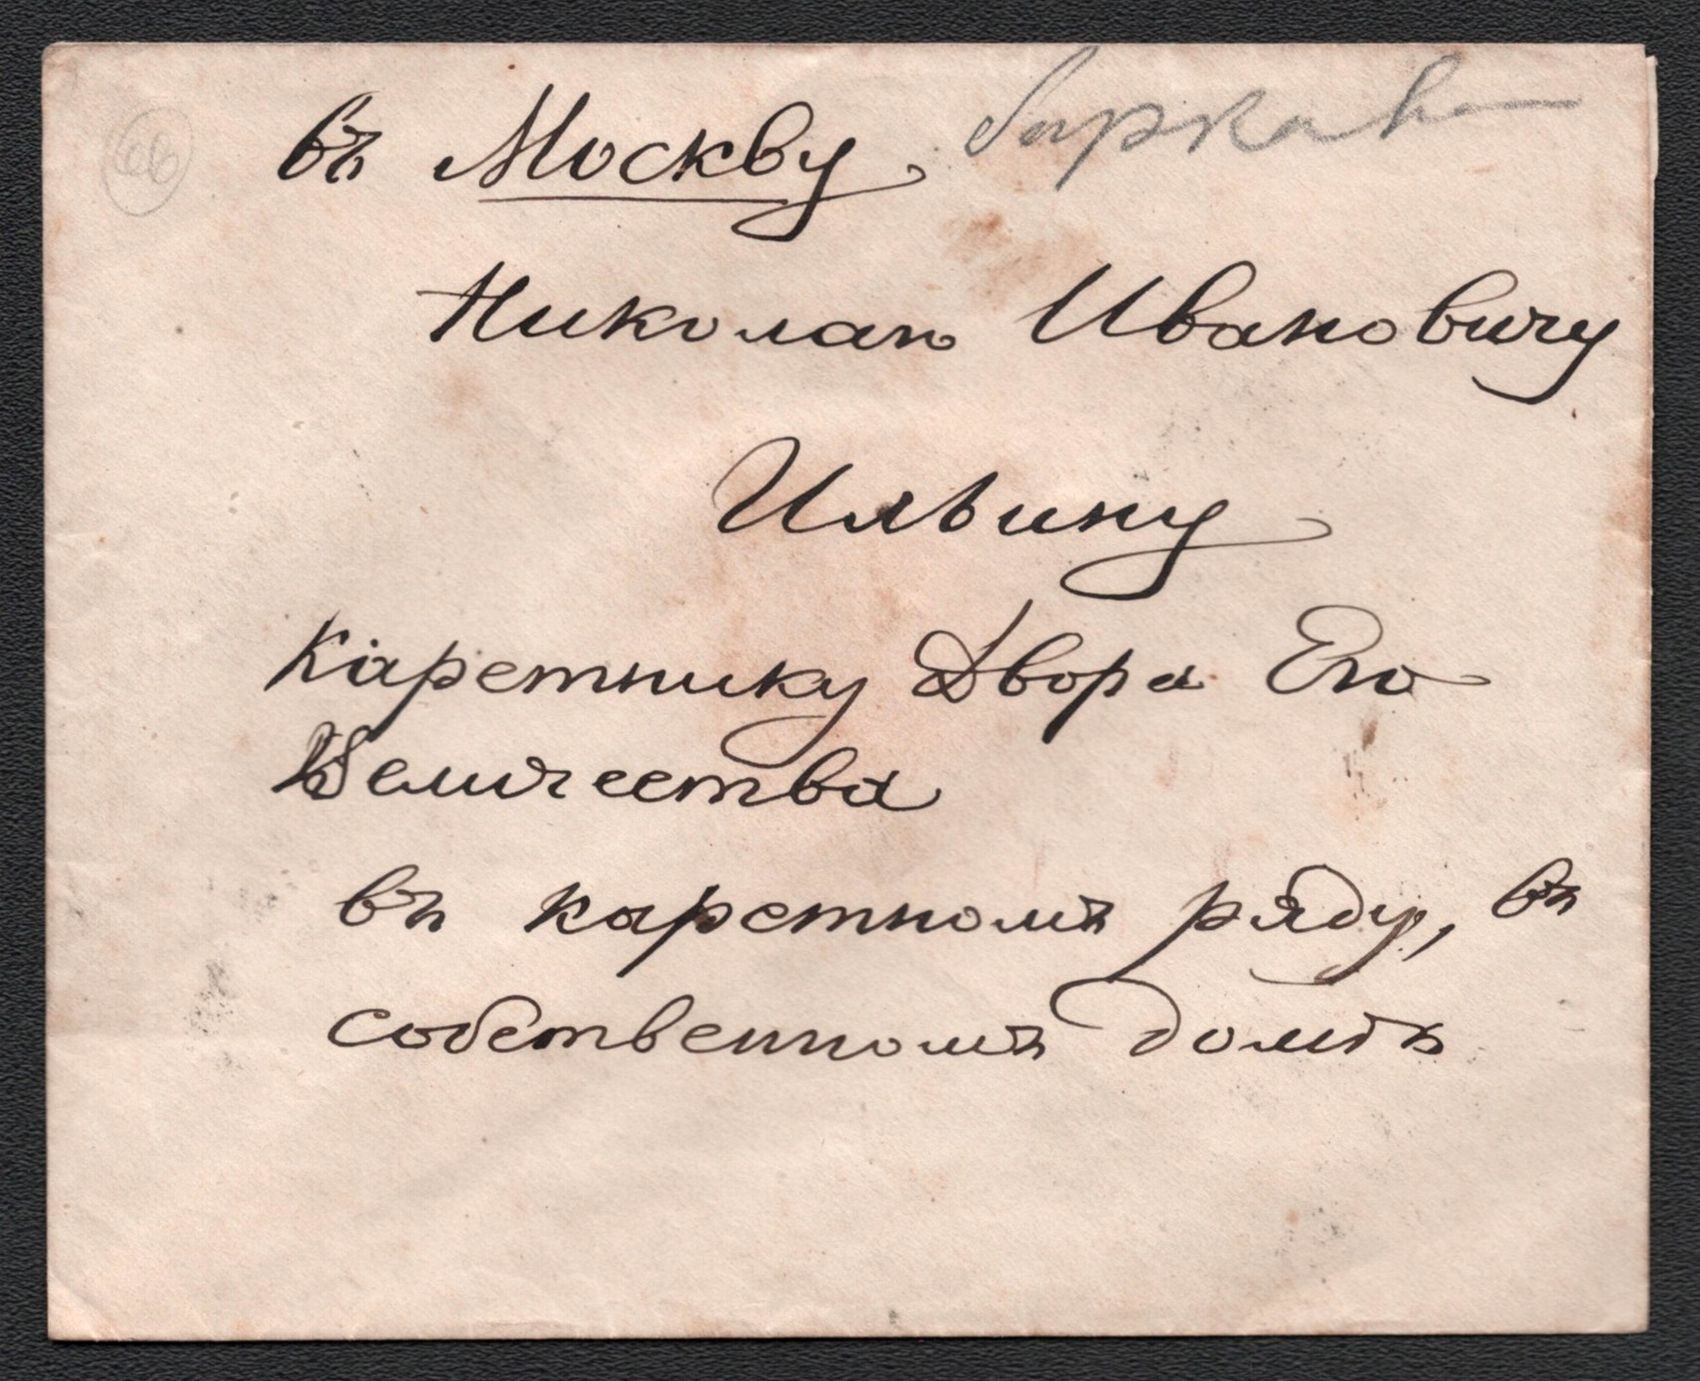 въ Москву
Николаю Ивановичу
Ильину
Каретнику Двора Его
Величества
въ каретномъ ряду, въ
собственномъ домѣ
66